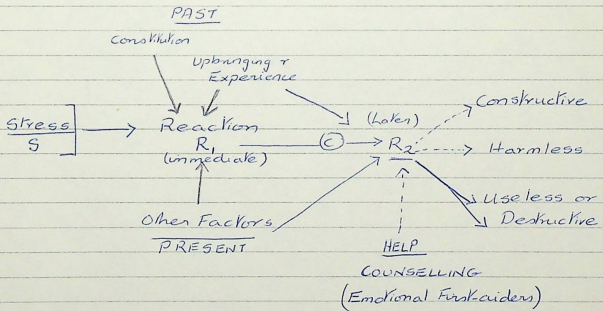 PAST
Constitution
Upbringing &
Experience
Stress
S
Reaction
R1
(immediate)
C
(Later)
R2
Constructive
Harmless
Useless or
Destructive
Other Factors
PRESENT
HELP
COUNSELLING
(Emotional First-aiders)